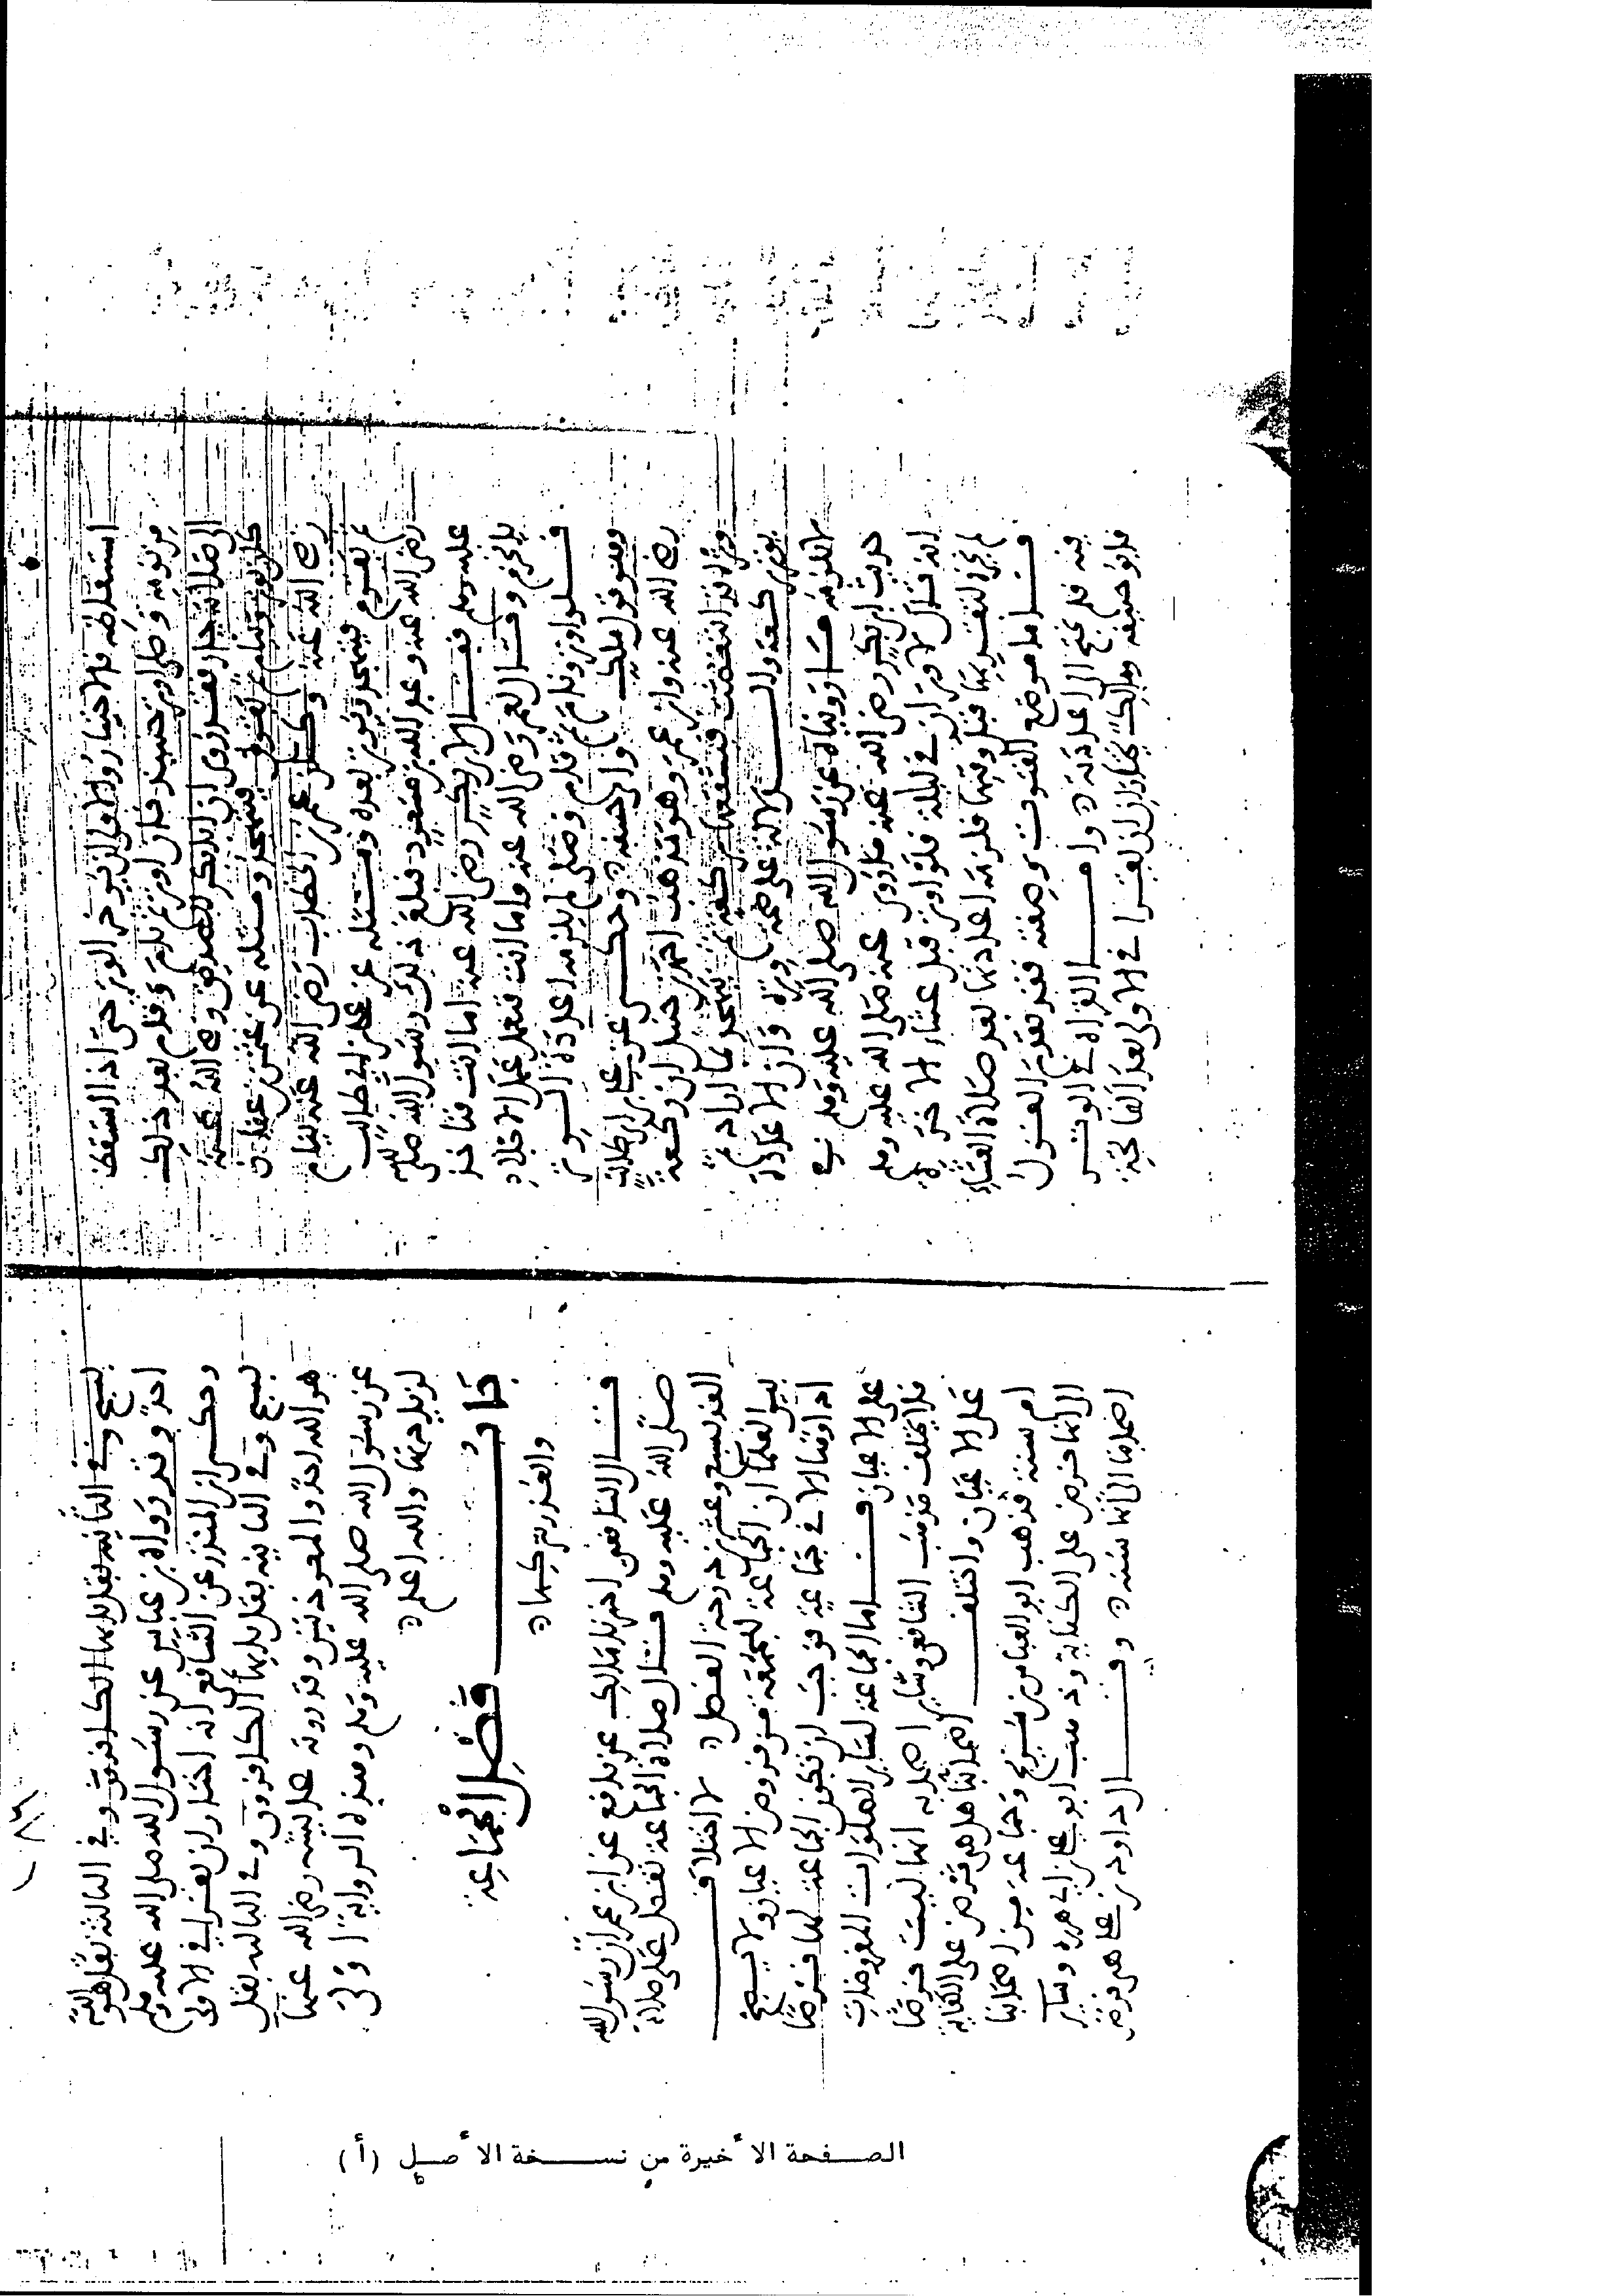 استيقاظه فلا خيار والاولى ان يؤخر الوتر حتى اذا استيقظ
من نومه وصلى اوتر حينئذ فان اوتر ثم نام وقام بعد ذلك
الى صلاته جاز فقد روى ان ابا بكر الصديق رضى الله عنه
كان يوتر وينام ثم يقوم فيتهجد ومثله عن عثمن بن عفان
رضى الله عنه وكان عمر بن الخطاب رضى الله عنه ينام
ثم يقوم فيتهجد ويوتر بعده ومثله عن على بن ابى طالب
رضى الله عنه وعبد الله بن مسعود فبلغ ذلك رسول الله صلى الله
عليه وسلم فقال لابى بكر رضى الله عنه اما انت فتاخذ
بالحزم وقال لعمر رضى الله عنه واما انت فتعمل عمل الاجلاد
فلو اوتر ونام ثم قام وصلى لم يلزمه اعادة الوتر
وهو قول ملك وابى حنيفة وحكى عن على بن ابى طالب
رضى الله عنه وابن عمر وهو مذهب احمد بن حنبل ان
وتره قد انتقض فيشفعه بركعة ثم يتهجد بما اراد ثم
يوتر بركعة والدلالة على صحة وتره وان الاعادة
لا تلزمه ما رويناه عن رسول الله صلى الله عليه وسلم فى
حديث ابى بكر رضى الله عنه ما روى عنه صلى الله عليه وسلم
انه قال لا وتران فى ليلة فلو اوتر قبل عشاء الاخرة
لم يجزه لتقديمها قبل وقتها فلزمه اعادتها بعد صلاة العشاء
فاما موضع القنوت وصفته فقد تقدم القول
فيه فلم نحتج الى اعادته واما القراة فى الوتر
فابو حنيفه ومالك يختاران ان يقرا فى الاولى بعد الفاتحة
بسبح وفى الثانيه بقل يايها الكافرون وفى الثالثه بقل هو الله
احد وقد رواه ابن عباس عن رسول الله صلى الله عليه وسلم
وحكى ابن المنذر عن الشافعى انه اختار ان يقرا فى الاولى
بسبح وفى الثانيه بقل يايها الكافرون وفى الثالثه بقل
هو الله احد والمعوذتين وقد روته عايشه رضى الله عنها
عن رسول الله صلى الله عليه وسلم وهذه الرواية اولى
لزيادتها والله اعلم
باب فضل الجماعة
والعذر بتركها
قال الشافعى اخبرنا مالك عن نافع عن ابن عمر ان رسول الله
صلى الله عليه وسلم قال صلاة الجماعة تفضل على صلاة
الفذ بسبع وعشرين درجة الفصل لا اختلاف
بين العلما ان الجماعة للجمعة من فروض الاعيان ولا يصح
اداوها الا فى جماعة فوجب ان تكون الجماعة لها فرضا
على الاعيان فاما الجماعة لساير الصلوات المفروضات
فلا يختلف مذهب الشافعى وساير اصحابه انها ليست فرضا
على الاعيان واختلف اصحابنا هل هى فرض على الكفاية
ام سنة فذهب ابو العباس بن سريج وجماعة من اصحابنا
الى انها فرض على الكفاية وذهب ابو على بن ابى هريره وساير
اصحابنا الى انها سنة وقال داود بن على هى فرض
الصفحة الأخيرة من نسخة الأصل (أ)